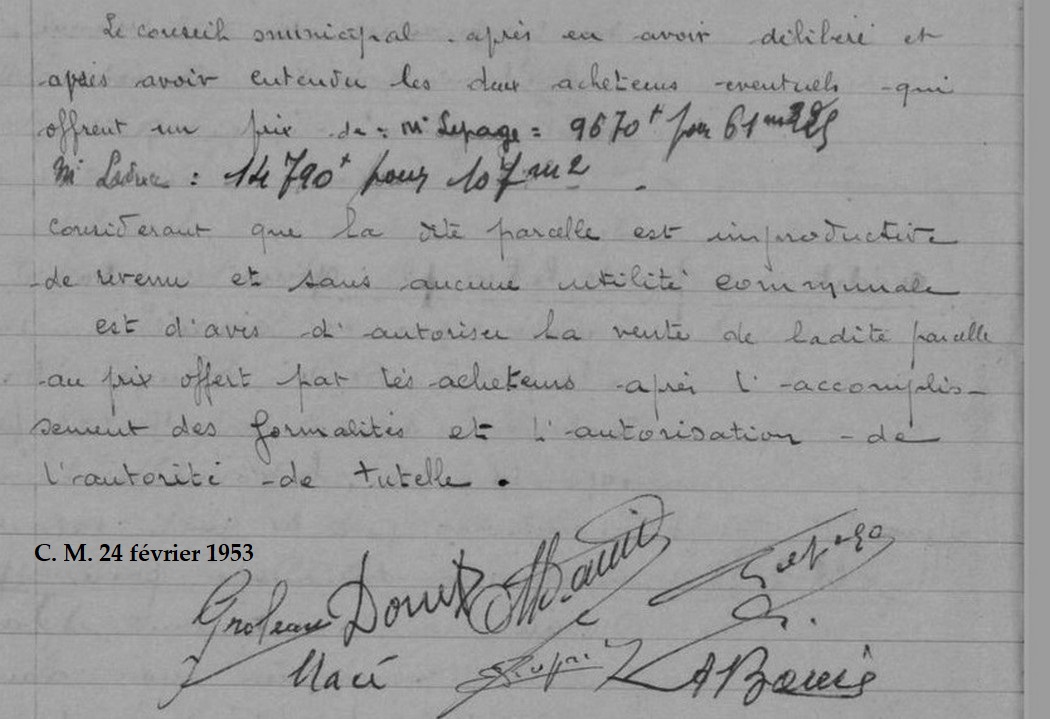 Le conseil municipal après en avoir délibéré et
après avoir entendu les deux acheteurs eventuels qui
offrent un prix de = Mr Lepage = 9670f pour 61m225
Mr Leduc : 14790f pour 107m2.
considerant que la dite parcelle est improductive
de revenu et sans aucune utilité communale
est d'avis d'autoriser la vente de ladite parcelle
au prix offert par les acheteurs après l'accomplis-
sement des formalités et l'autorisation de
l'autorité de tutelle.
C. M. 24 février 1953
Groleau
Macé ABonis